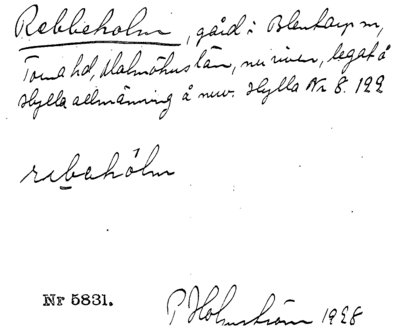 Rebbeholm, gård i Blentarp sn,
Torna hd, Malmöhus län, nu riven, legat å
Hylla allmänning å nuv. Hylla Nr 8. 122
rebəhólm
Nr 5831.
P Holmström 1928